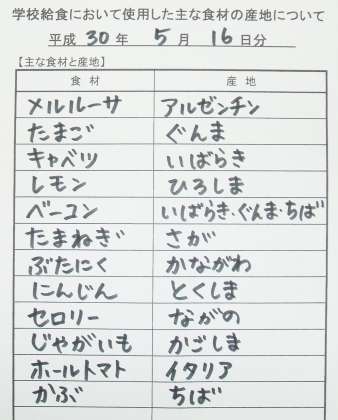 学校給食において使用した主な食材の産地について
平成 30 年 5 月 16 日分
【主な食材と産地】
食材 産地
メルルーサ アルゼンチン
たまご ぐんま
キャベツ いばらき
レモン ひろしま
ベーコン いばらき・ぐんま・ちば
たまねぎ さが
ぶたにく かながわ
にんじん とくしま
セロリー ながの
じゃがいも かごしま
ホールトマト イタリア
かぶ ちば